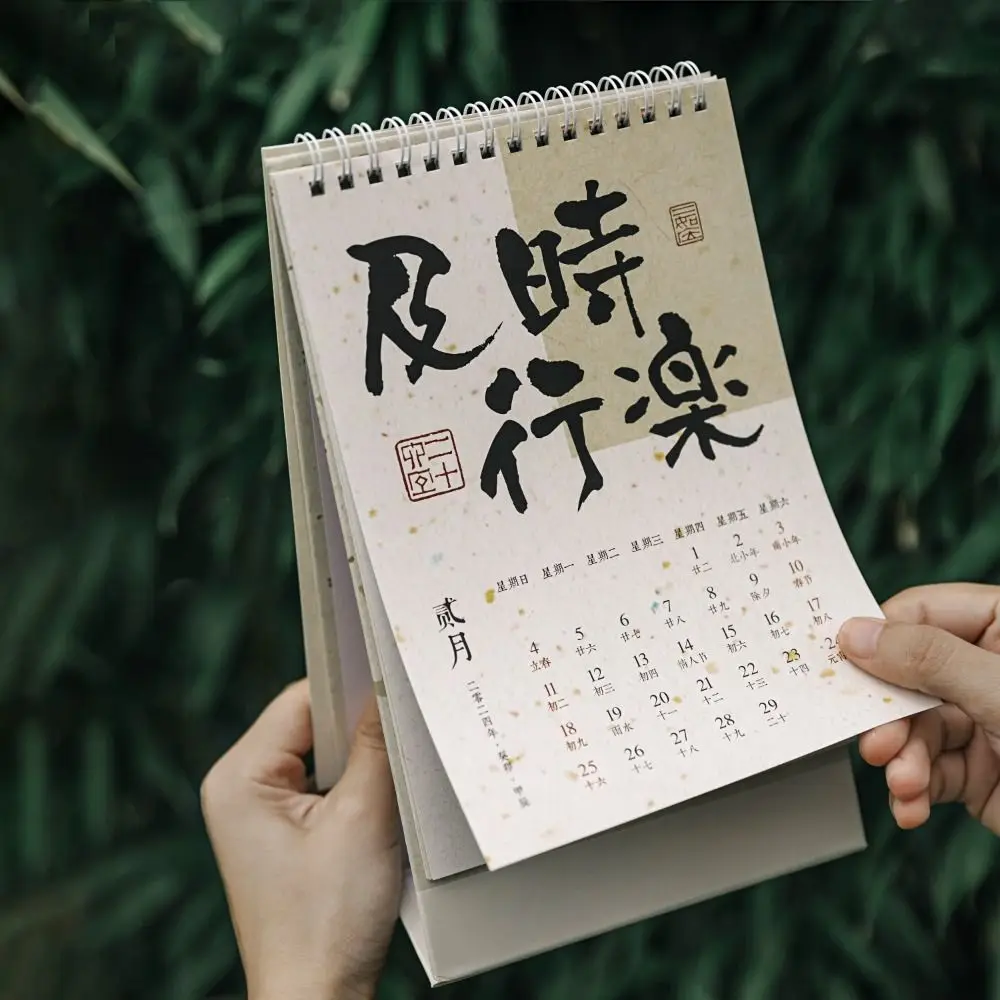 及時
行楽
贰月
二零二四年
星期日 星期一 星期二 星期三 星期四 星期五 星期六
1 2 3
廿二 北小年 南小年
4 5 6 7 8 9 10
立春 廿六 廿七 廿八 廿九 除夕 春节
11 12 13 14 15 16 17
初二 初三 初四 情人节 初六 初七 初八
18 19 20 21 22 23 24
初九 雨水 十一 十二 十三 十四 元宵
25 26 27 28 29
十六 十七 十八 十九 二十